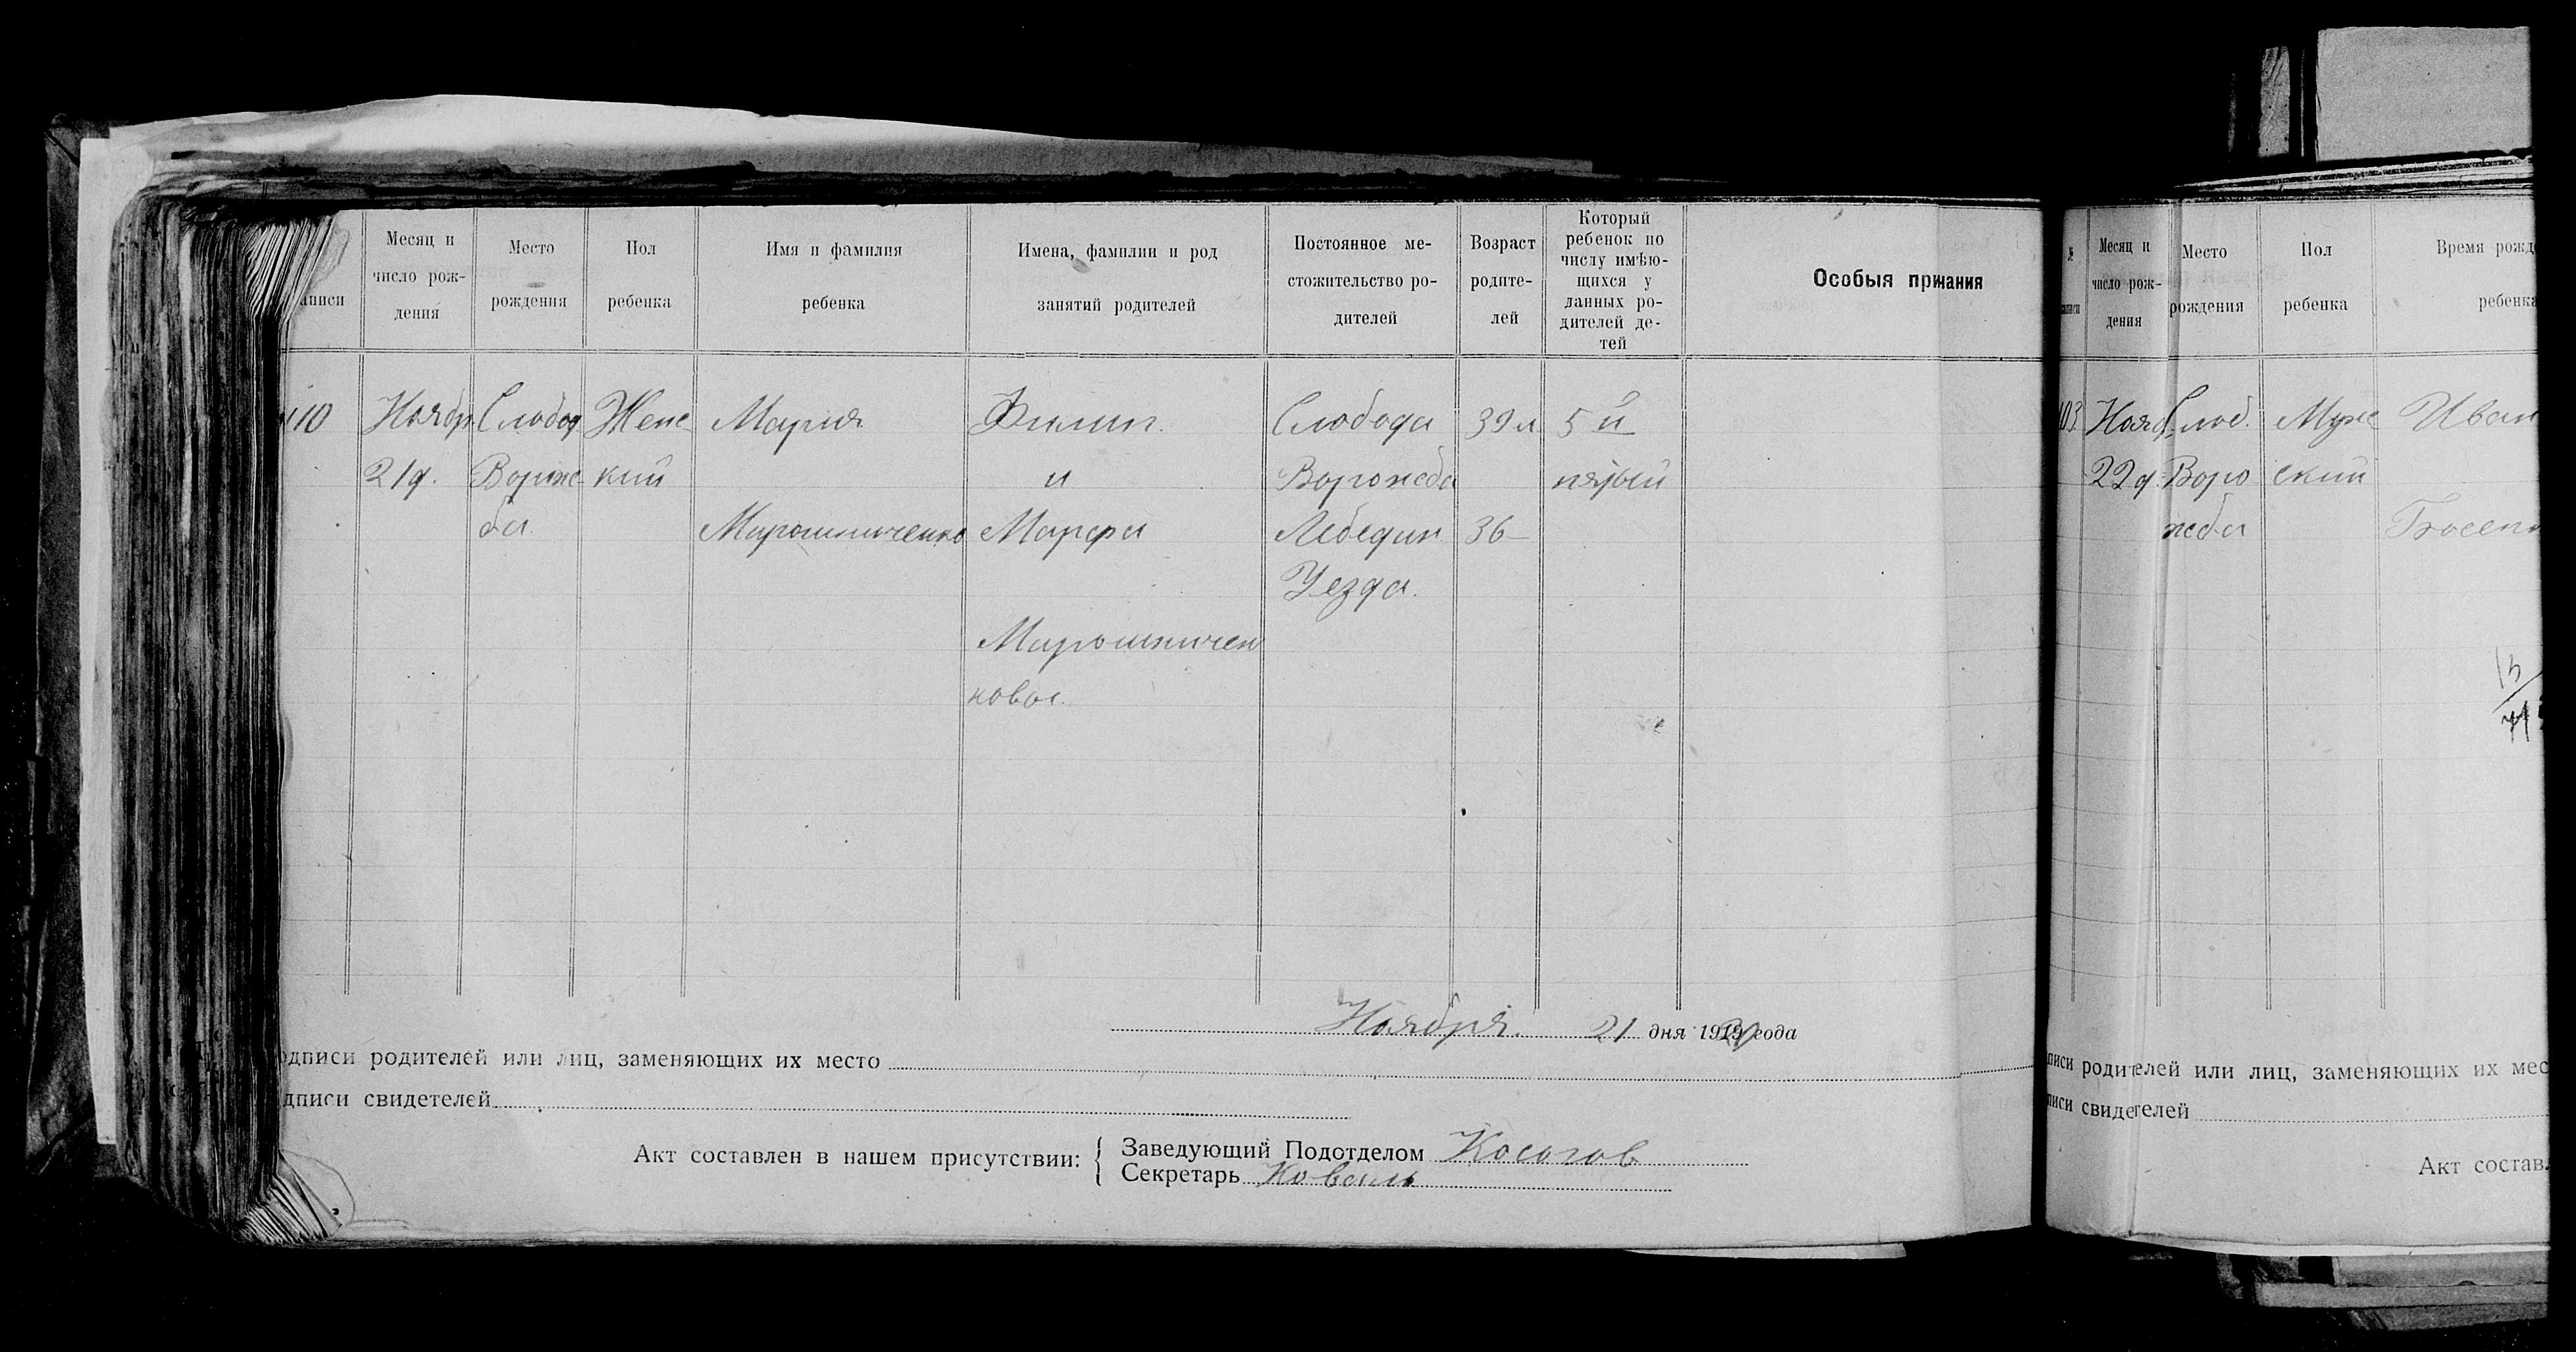 аписи
Месяц и
число рож-
дения
Место
рождения
Пол
ребенка
Имя и фамилия
ребенка
Имена, фамилии и род
занятий родителей
Постоянное ме-
стожительство ро-
дителей
Возраст
родите-
лей
Который
ребенок по
числу имѣю-
щихся у
данных ро-
дителей де-
тей
Особыя примания
110
Ноябр
21д.
Слобод
Ворож
ба.
Женс
кий
Мария
Мирошниченко
Филип
и
Марфа
Мирошничен
ковы.
Слобода
Ворожба
Лебедин
Уезда.
39л
36
5й
пятый
Ноября. 21 дня 1920 года
одписи родителей или лиц, заменяющих их место
дписи свидетелей
Акт составлен в нашем присутствии:
Заведующий Подотделом Косогов
Секретарь Коваль
№
аписи
Месяц и
число рож-
дения
Место
рождения
Пол
ребенка
Время рожд
ребенка
103
Нояб
22д.
Слоб.
Воро
жба
Муж
ский
Иван
писи родителей или лиц, заменяющих их мес
писи свидетелей
Акт состав